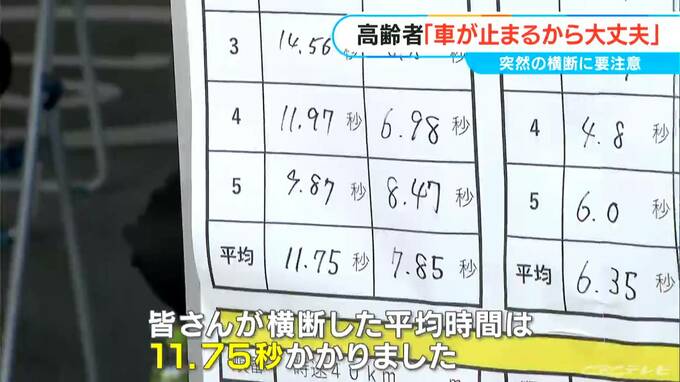 高齢者「車が止まるから大丈夫」
突然の横断に要注意
3 14.56
4 11.97 秒 6.98 秒
5 9.87 秒 8.47 秒
平均 11.75 秒 7.85 秒
4 4.8
5 6.0
平均 6.35
皆さんが横断した平均時間は
11.75秒かかりました
時速40km
CBCテレビ